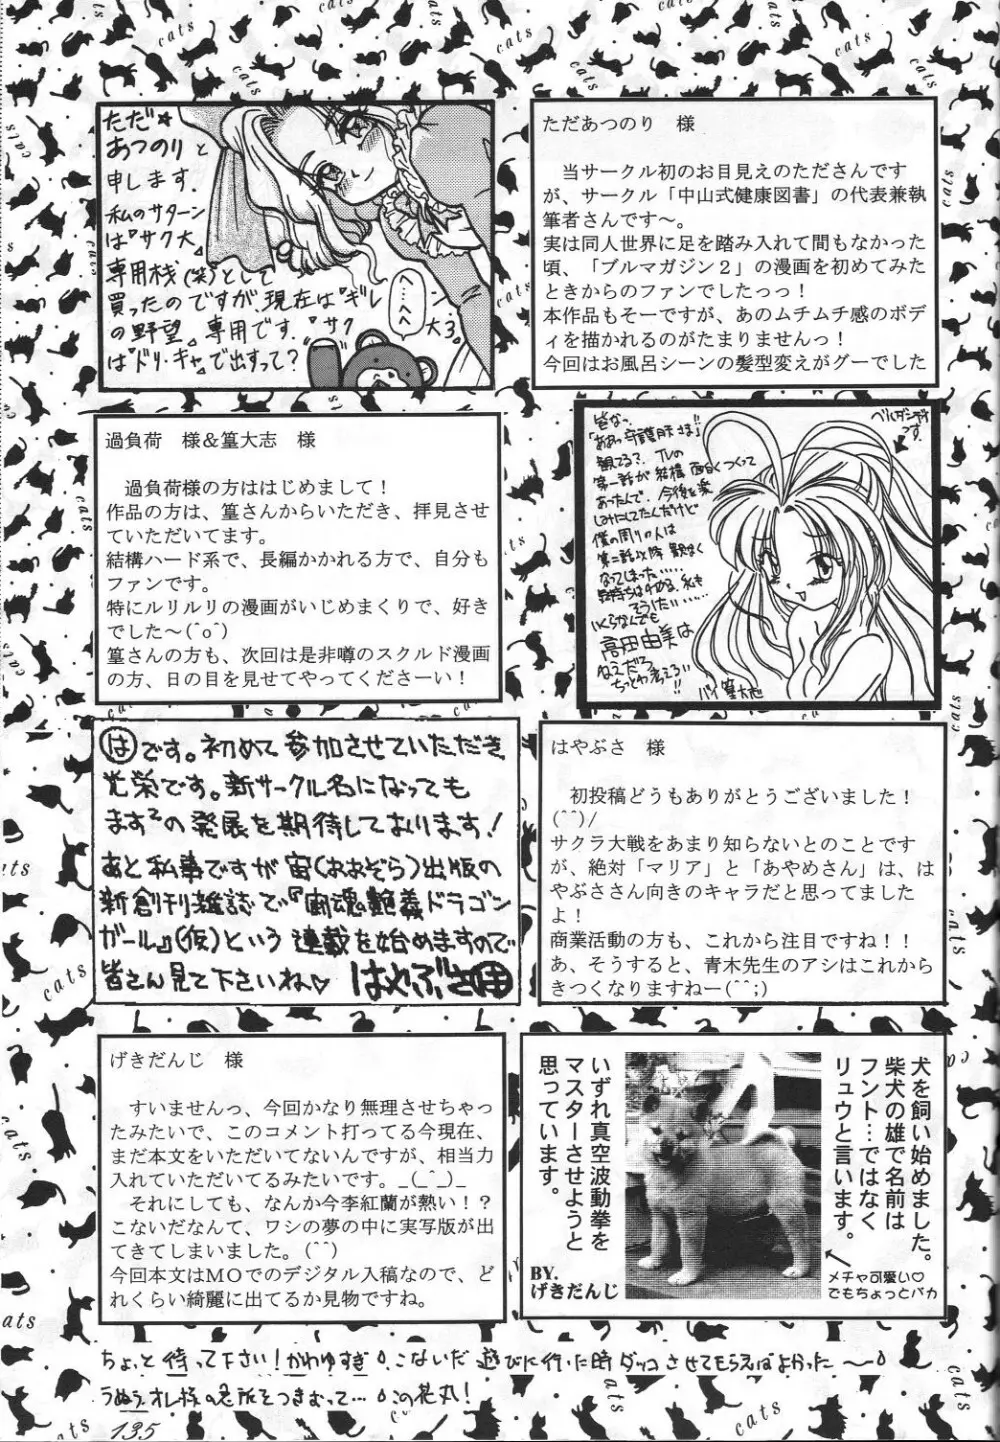 ただ☆
あつのりと
申します.
私のサターン
は『サクラ大』
専用機(笑)として
買ったのですが、現在は『ギレン
の野望』専用です.『サクラ大3』
は『ドリ・キャ』で出すって？
へ…へへ
ただあつのり　様
当サークル初のお目見えのたださんです
が、サークル「中山式健康図書」の代表兼執
筆者さんです～。
実は同人世界に足を踏み入れて間もなかった
頃、「ブルマガジン２」の漫画を初めてみた
ときからのファンでしたっっ！
本作品もそーですが、あのムチムチ感のボデ
ィを描かれるのがたまりませんっ！
今回はお風呂シーンの髪型変えがグーでした
過負荷　様＆篁大志　様
過負荷様の方ははじめまして！
作品の方は、篁さんからいただき、拝見させ
ていただいてます。
結構ハード系で、長編かかれる方で、自分も
ファンです。
特にルリルリの漫画がいじめまくりで、好き
でした～(^o^)
篁さんの方も、次回は是非噂のスクルド漫画
の方、日の目を見せてやってくださーい！
ベルダンディー
です。
皆なっ、
「ああっ守護月天さま!!」
観てる？ TVの
第一話が結構面白くつくって
あったんで、今後を楽
しみにしてたんだけど
僕の周りの人は
第二話以降観なく
なってしまった……
気持ちは分かる、私も
そうしたい……
いくらなんでも
高田由美は
ねえだろ
ちっとは考えろい!!
バイ 篁大志
はです。初めて参加させていただき
光栄です。新サークル名になっても
ますますの発展を期待しております！
あと私事ですが宙(おおぞら)出版の
新創刊雑誌で『闘魂艶義ドラゴン
ガール』(仮)という連載を始めますので
皆さん見て下さいね♡ はやぶさ
はやぶさ　様
初投稿どうもありがとうございました！
(^^)/
サクラ大戦をあまり知らないとのことです
が、絶対「マリア」と「あやめさん」は、は
やぶささん向きのキャラだと思ってました
よ！
商業活動の方も、これから注目ですね！！
あ、そうすると、青木先生のアシはこれから
きつくなりますねー(^^;)
げきだんじ　様
すいませんっ、今回かなり無理させちゃっ
たみたいで、このコメント打ってる今現在、
まだ本文をいただいてないんですが、相当力
入れていただいてるみたいです。_(_^_)_
それにしても、なんか今李紅蘭が熱い！？
こないだなんて、ワシの夢の中に実写版が出
てきてしまいました。(^^)
今回本文はＭＯでのデジタル入稿なので、ど
れくらい綺麗に出てるか見物ですね。
犬を飼い始めました。
柴犬の雄で名前は
フント…ではなく
リュウと言います。
いずれ真空波動拳を
マスターさせようと
思っています。
メチャ可愛い♡
でもちょっとバカ
BY.
げきだんじ
ちょっと待って下さい！かわゆすぎ。こないだ遊びに行った時ダッコさせてもらえばよかった〜。
うぬぅオレ様の急所をつきおって…。この花丸！
135
cats